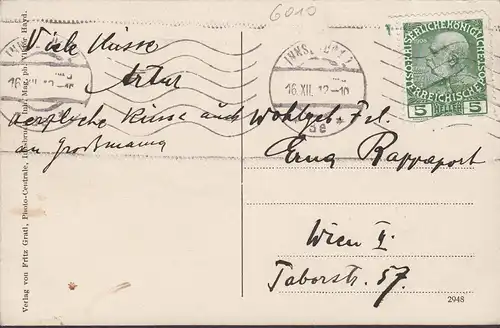 6010
Viele Küsse
Artur
herzliche Küsse auch
an Großmama
INNSBRUCK 2
16 XII. 12-10
INNSBRUCK 2
16. XII. 12-10
* 5e *
KAISERLICHE KÖNIGLICHE
ÖSTERREICHISCHE
5 HELLER 5
Wohlgeb Frl.
Erna Rappaport
Wien II.
Taborstr. 57
2948
Verlag von Fritz Gratl, Photo-Centrale, Innsbruck, Mag. ph. Viktor Hayd.